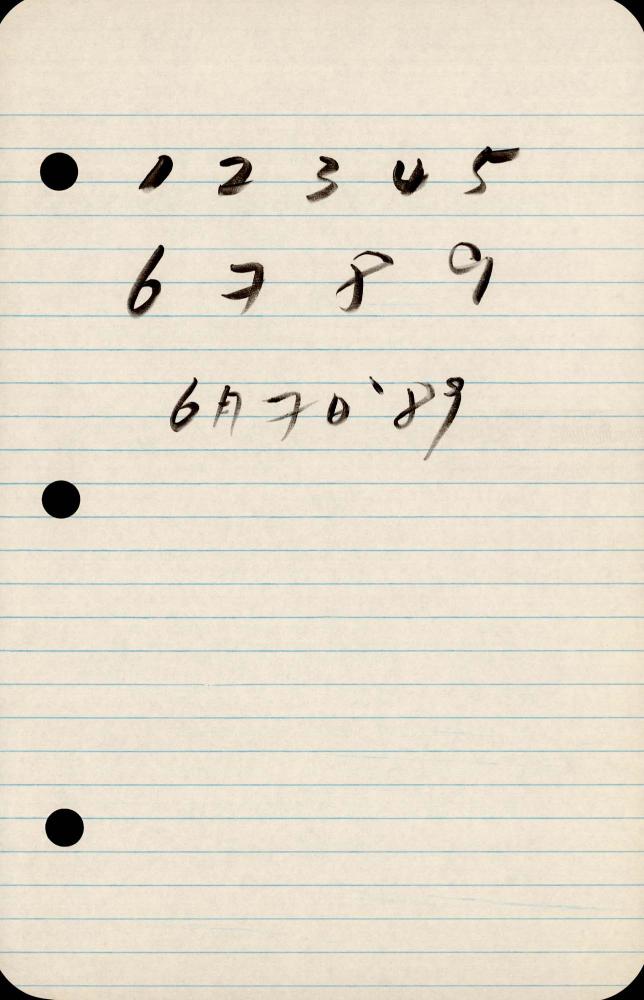 1 2 3 4 5
6 7 8 9
6月7日'89